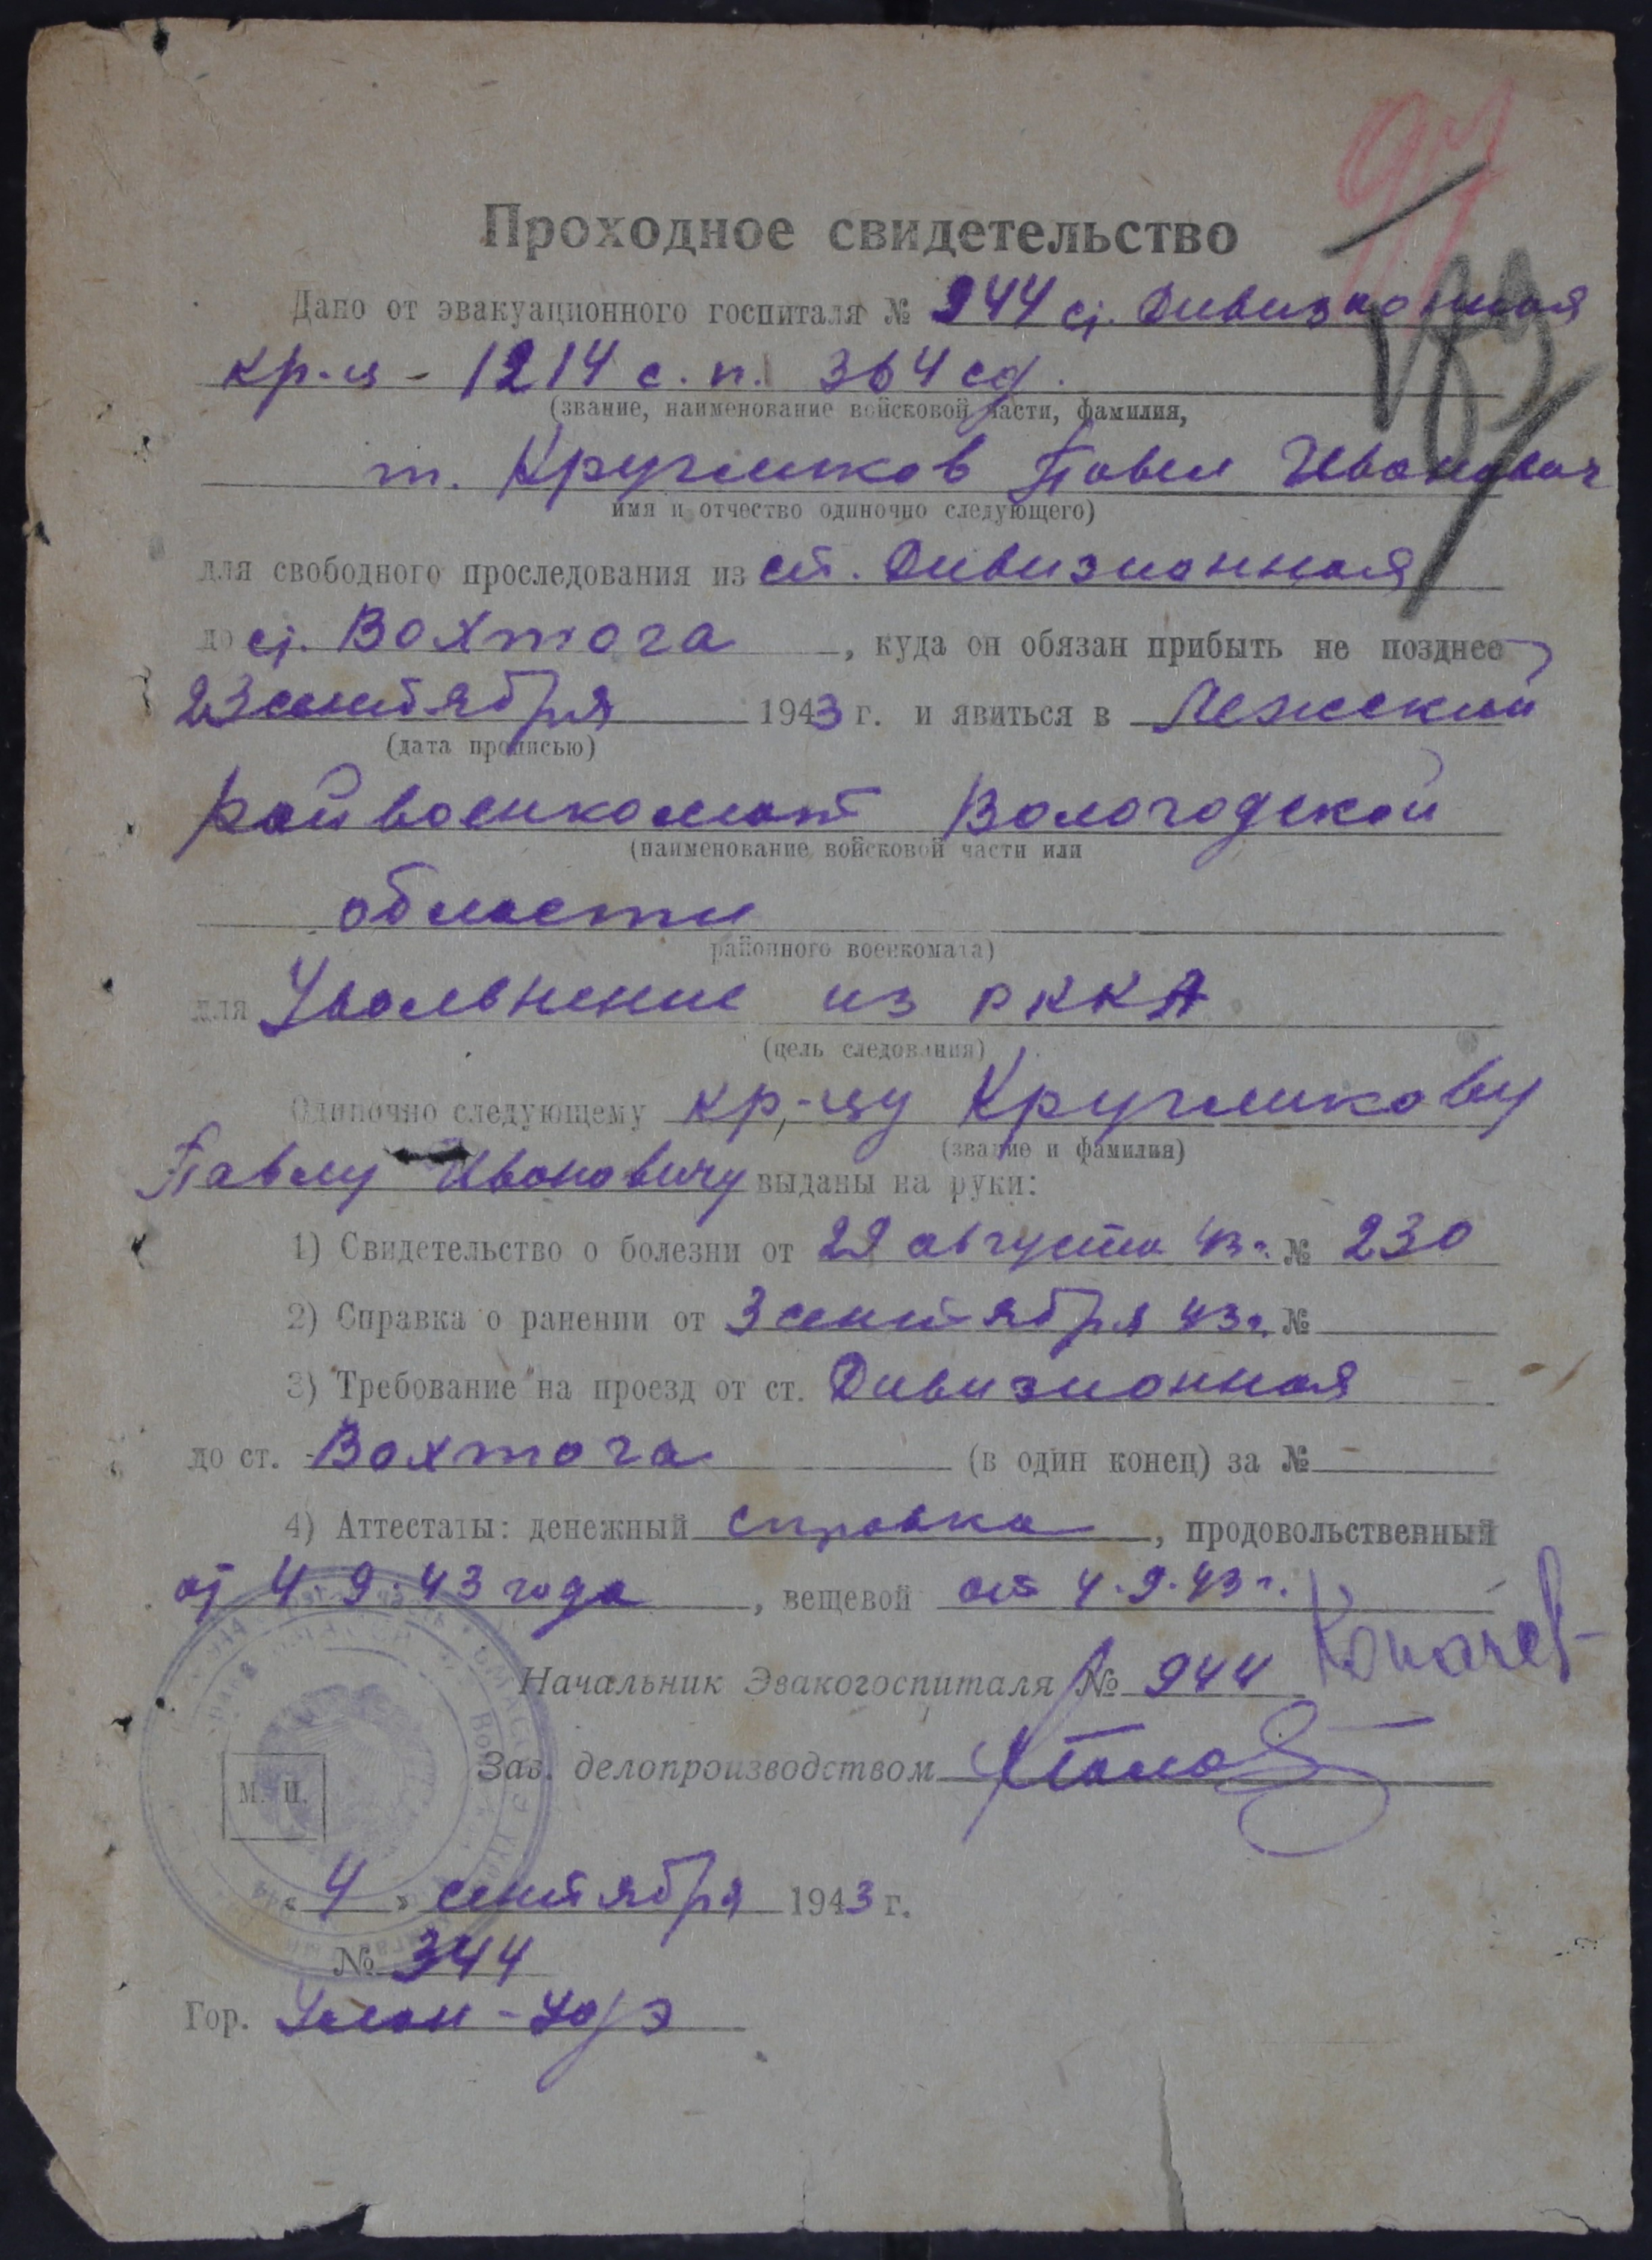 Проходное свидетельство
Дано от эвакуационного госпиталя № 944 ст. Дивизионная
кр-ц - 1214 с. п. 364 сд.
(звание, наименование войсковой части, фамилия,
т. Кругликов Павел Иванович
имя и отчество одиночно следующего)
для свободного проследования из ст. Дивизионная
до ст. Вохтога, куда он обязан прибыть не позднее
23 сентября 1943 г. и явиться в Лежский
(дата прописью)
райвоенкомат Вологодской
(наименование войсковой части или
области
районного военкомата)
для Увольнение из РККА
(цель следования)
Одиночно следующему кр-цу Кругликову
(звание и фамилия)
Павлу Ивановичу выданы на руки:
1) Свидетельство о болезни от 29 августа 43 г. № 230
2) Справка о ранении от 3 сентября 43 г. №
3) Требование на проезд от ст. Дивизионная
до ст. Вохтога (в один конец) за № -
4) Аттестаты: денежный справка, продовольственный
от 4.9.43 года, вещевой от 4.9.43 г.
Начальник Эвакогоспиталя № 944
Зав. делопроизводством
М. П.
«4» сентября 1943 г.
№ 344
Гор. Улан-Удэ